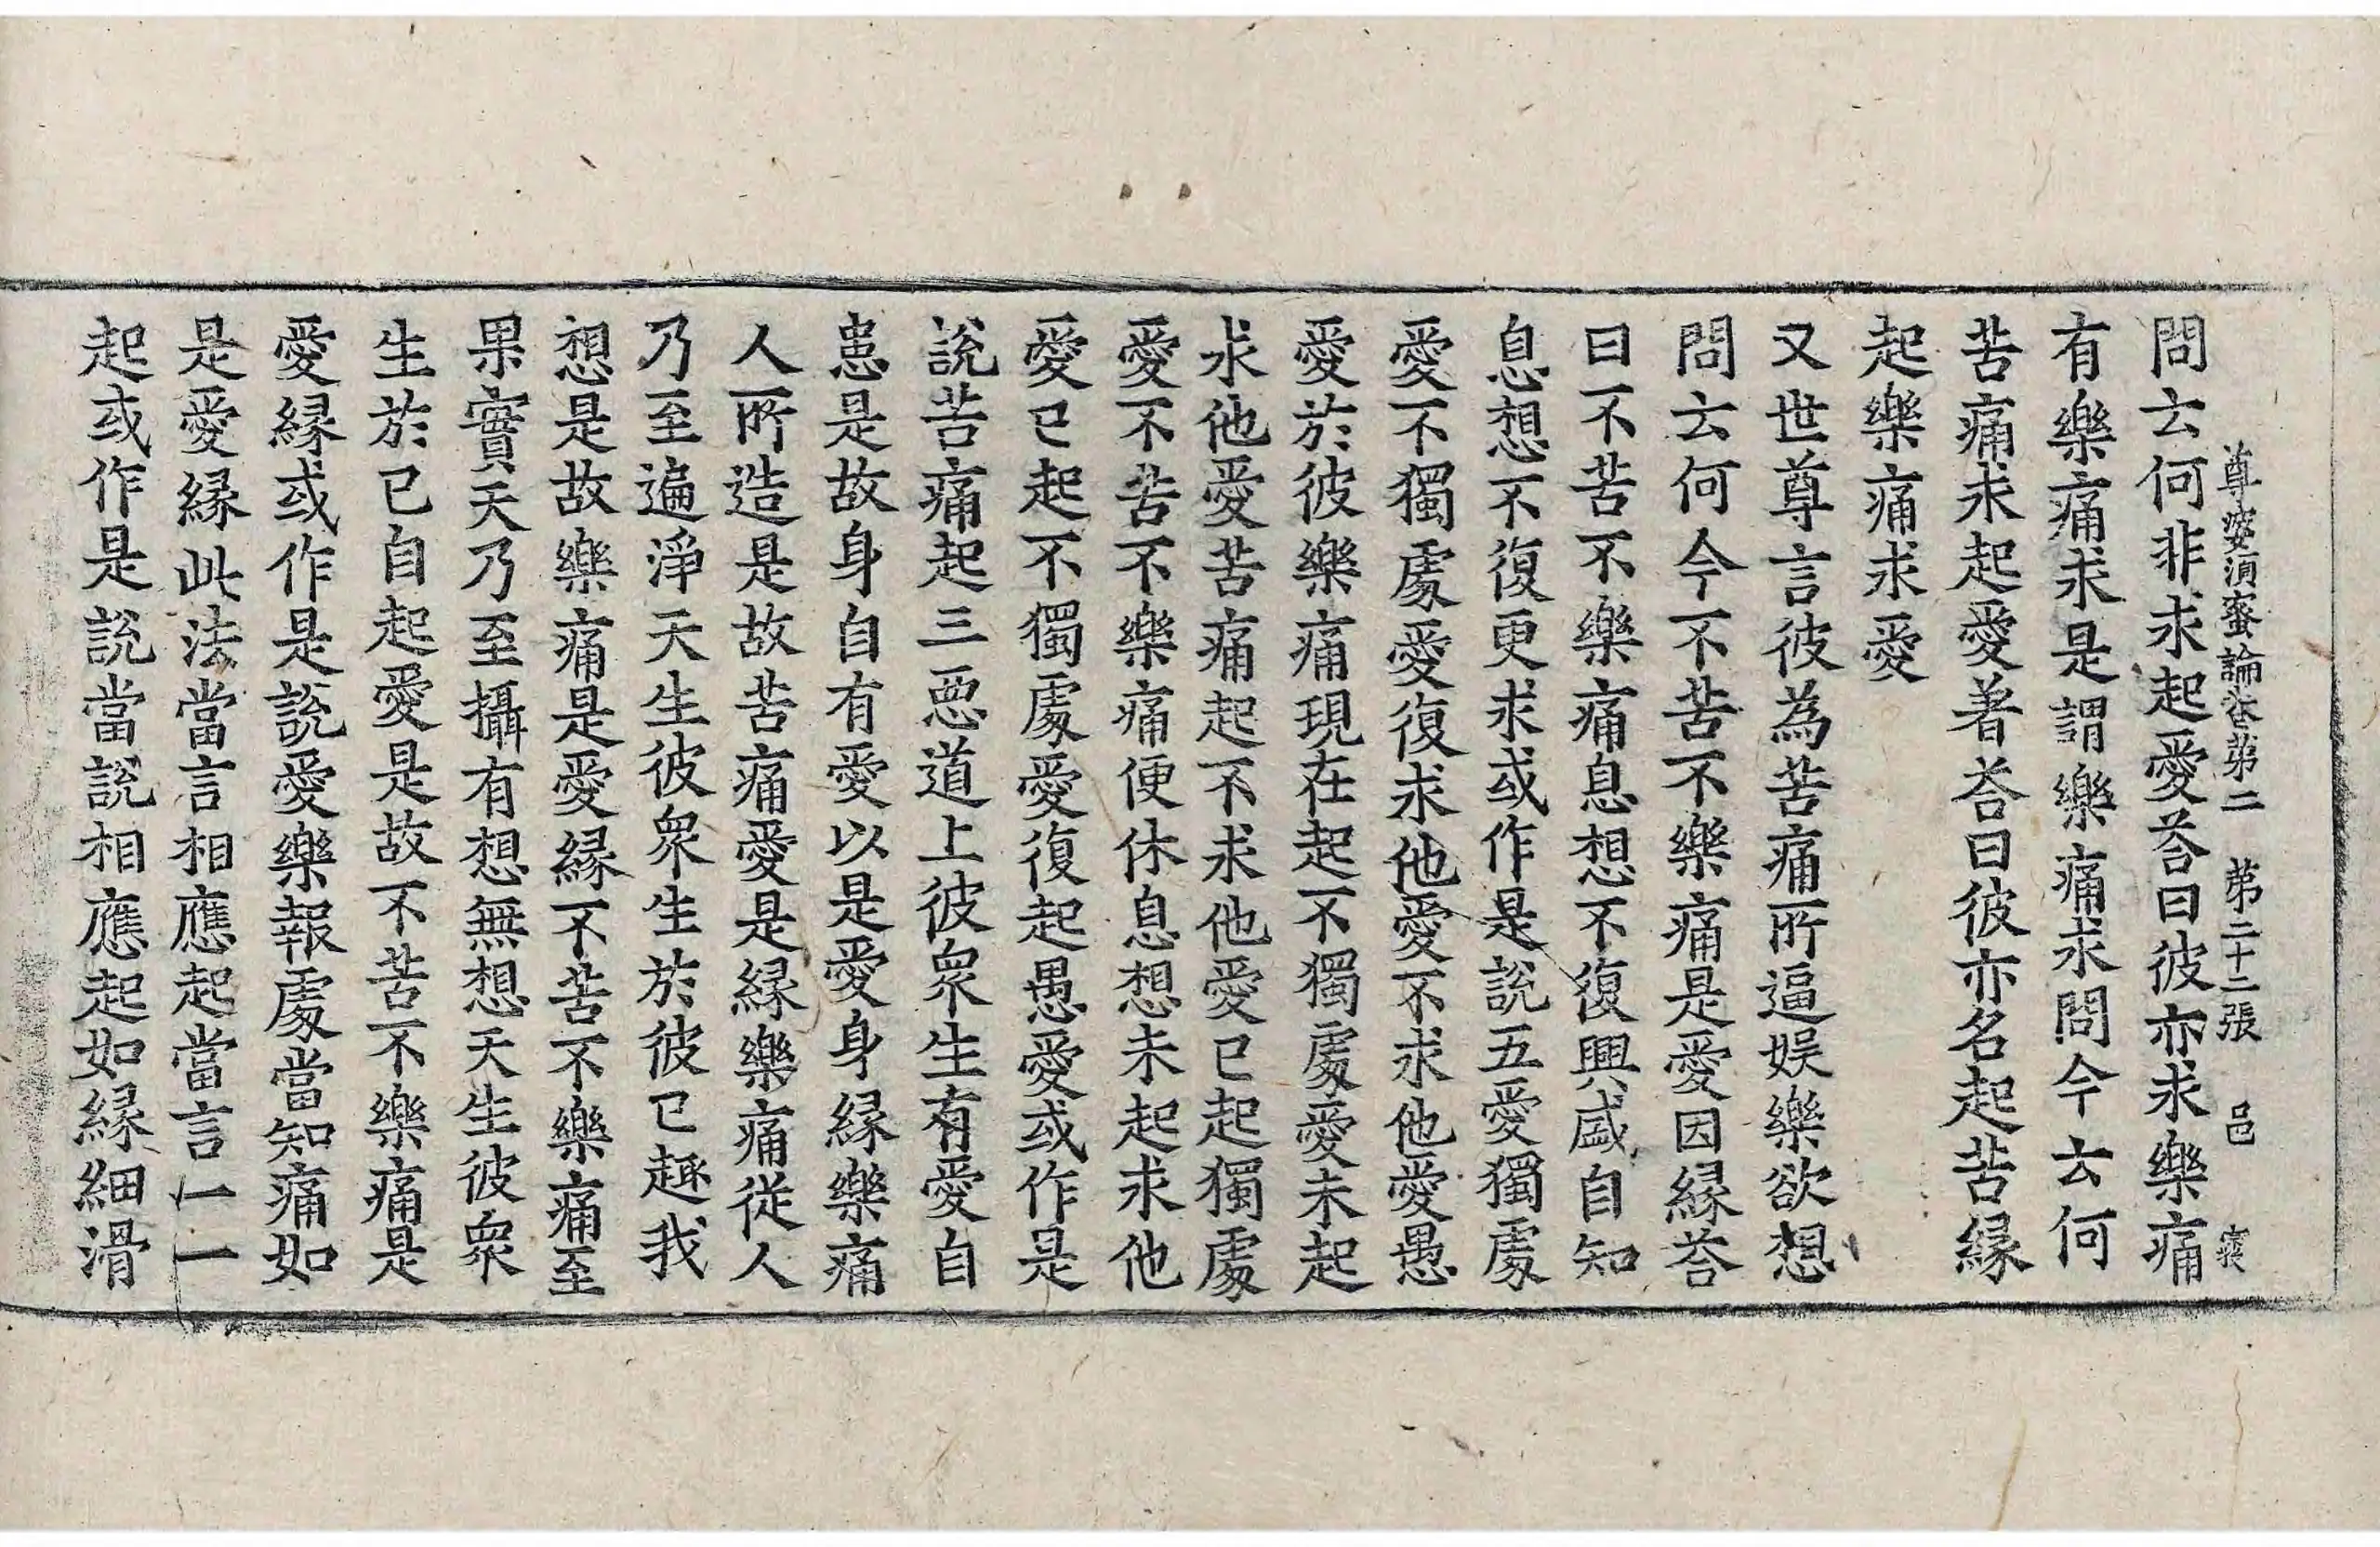 尊婆須蜜論卷第二　第二十二張　邑
問云何非求起愛荅曰彼亦求樂痛
有樂痛求是謂樂痛求問今云何
苦痛求起愛著荅曰彼亦名起苦縁
起樂痛求愛
又世尊言彼為苦痛所逼娱樂欲想
問云何今不苦不樂痛是愛因縁荅
曰不苦不樂痛息想不復興盛自知
息想不復更求或作是說五愛獨處
愛不獨處愛復求他愛不求他愛愚
愛於彼樂痛現在起不獨處愛未起
求他愛苦痛起不求他愛已起獨處
愛不苦不樂痛便休息想未起求他
愛已起不獨處愛復起愚愛或作是
說苦痛起三惡道上彼眾生有愛自
恚是故身自有愛以是愛身縁樂痛
人所造是故苦痛愛是縁樂痛從人
乃至遍淨天生彼眾生於彼已趣我
想是故樂痛是愛縁不苦不樂痛至
果實天乃至攝有想無想天生彼眾
生於已自起愛是故不苦不樂痛是
愛縁或作是說愛樂報處當知痛如
是愛縁此法當言相應起當言一一
起或作是說當說相應起如縁細滑